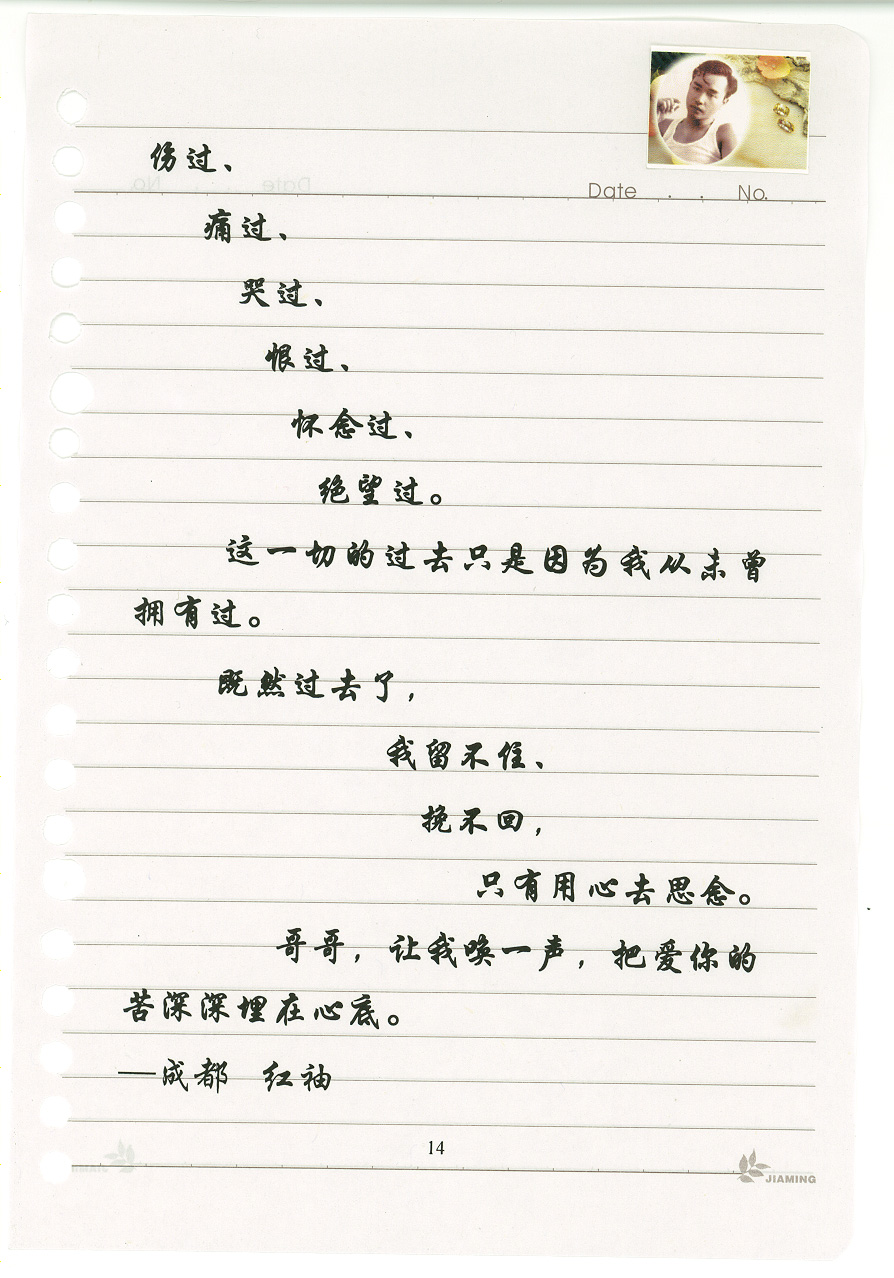 伤过、
Date . . No.
痛过、
哭过、
恨过、
怀念过、
绝望过。
这一切的过去只是因为我从未曾
拥有过。
既然过去了，
我留不住、
挽不回，
只有用心去思念。
哥哥，让我唤一声，把爱你的
苦深深埋在心底。
—成都 红袖
14
JIAMING